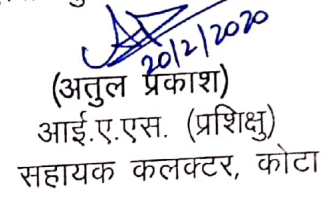 20/2/2020
(अतुल प्रकाश)
आई.ए.एस. (प्रशिक्षु)
सहायक कलक्टर, कोटा